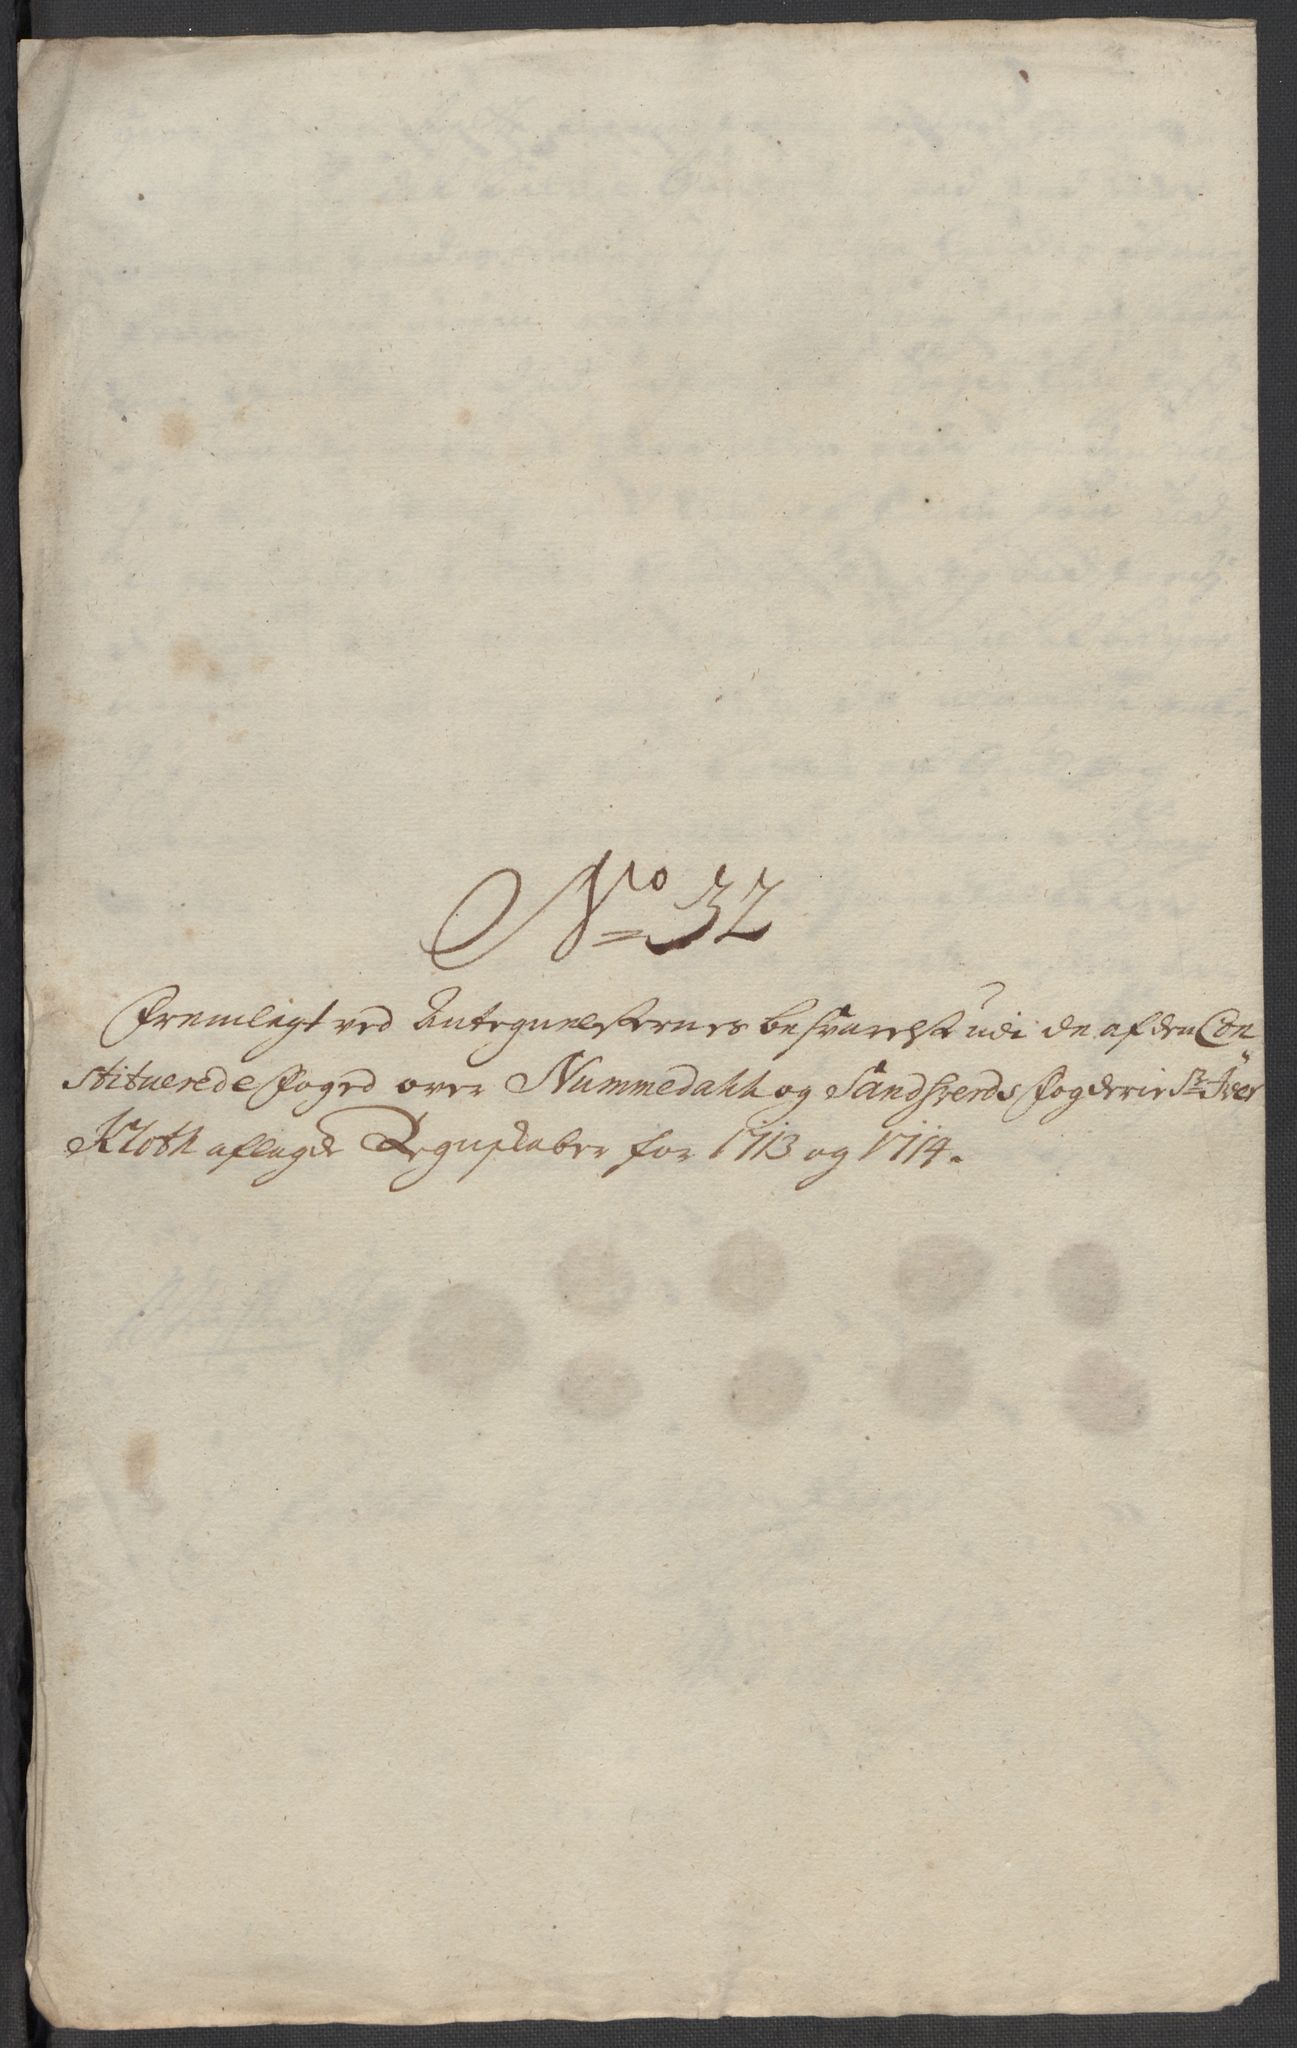 No 32
Fremlagt ved Antegnelsernes besvarelse udi de af den Con
stituerede Foged over Nummedahl og Sandsverds Fogderie Sr. Iver
Kloth aflagde Regnskaber for 1713 og 1714.